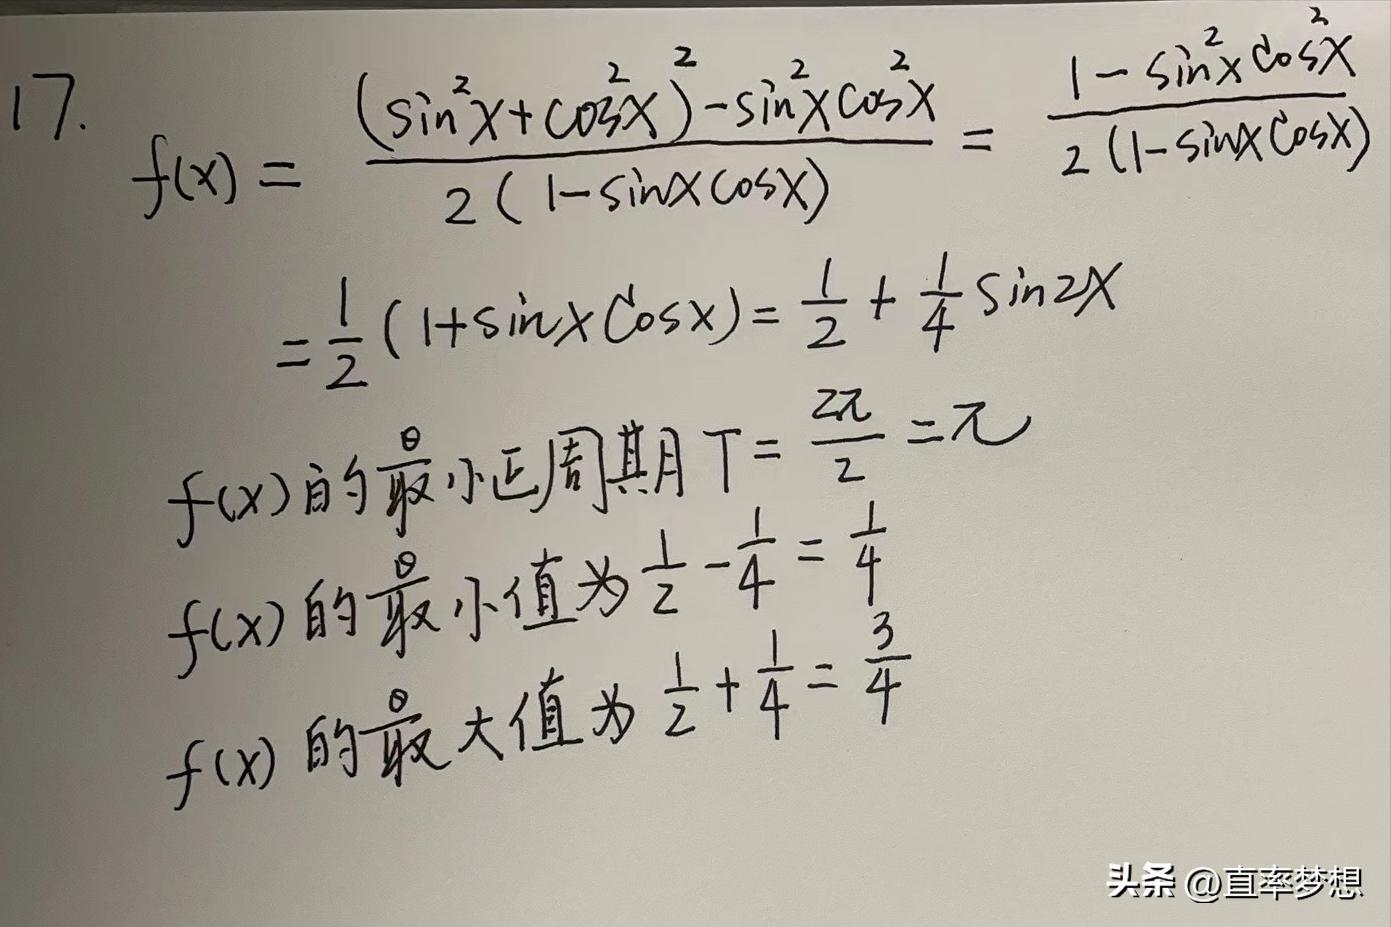 17.
f(x) = \frac{(sin²x+cos²x)²-sin²xcos²x}{2(1-sinxcosx)} = \frac{1-sin²xcos²x}{2(1-sinxcosx)}
= \frac{1}{2}(1+sinxcosx) = \frac{1}{2} + \frac{1}{4} sin2x
f(x)的最小正周期T = \frac{2π}{2} = π
f(x)的最小值为 \frac{1}{2} - \frac{1}{4} = \frac{1}{4}
f(x)的最大值为 \frac{1}{2} + \frac{1}{4} = \frac{3}{4}
头条 @直率梦想